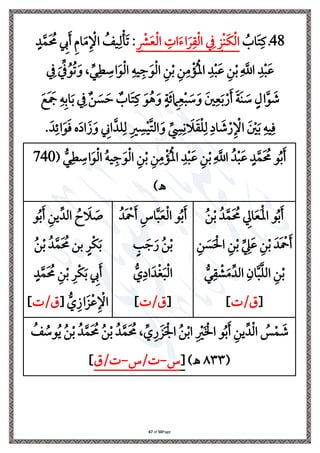 48. كِتَابُ الْكَنْزِ فِي الْقِرَاءَاتِ الْعَشْرِ: تَأْلِيفُ الْإِمَامِ أَبِي مُحَمَّدٍ
عَبْدِ اللَّهِ بْنِ عَبْدِ الْمُؤْمِنِ بْنِ الْوَجِيهِ الْوَاسِطِيِّ، وَتُوُفِّيَ فِي
شَوَّالٍ سَنَةَ أَرْبَعِينَ وَسَبْعِمِائَةٍ وَهُوَ كِتَابٌ حَسَنٌ فِي بَابِهِ جَمَعَ
فِيهِ بَيْنَ الْإِرْشَادِ لِلْقَلَانِسِيِّ وَالتَّيْسِيرِ لِلدَّانِي وَزَادَهُ فَوَائِدَ.
أَبُو مُحَمَّدٍ عَبْدُ اللَّهِ بْنِ عَبْدِ الْمُؤْمِنِ بْنِ الْوَجِيهُ الْوَاسِطِيُّ (740
هـ)
أَبُو الْمَعَالِي مُحَمَّدُ بْنُ
أَحْمَدَ بْنِ عَلِيِّ بْنِ الْحَسَنِ
بْنِ اللَّبَّانِ الدِّمَشْقِيُّ
[ق/ت]
أَبُو الْعَبَّاسِ أَحْمَدُ
بْنُ رَجَبٍ
الْبَغْدَادِيُّ
[ق/ت]
صَلَاحُ الدِّينِ أَبُو
بَكْرٍ بن مُحَمَّدُ بْنُ
أَبِي بَكْرِ بْنِ مُحَمَّدٍ
الْإِعْزَازِيُّ [ق/ت]
شَمْسُ الدِّينِ أَبُو الْخَيْرِ ابْنُ الْجَزَرِيِّ، مُحَمَّدُ بْنُ مُحَمَّدُ بْنُ يُوسُفُ
(٨٣٣ هـ) [س-ت/س-ت/ق]
47 of 50Page